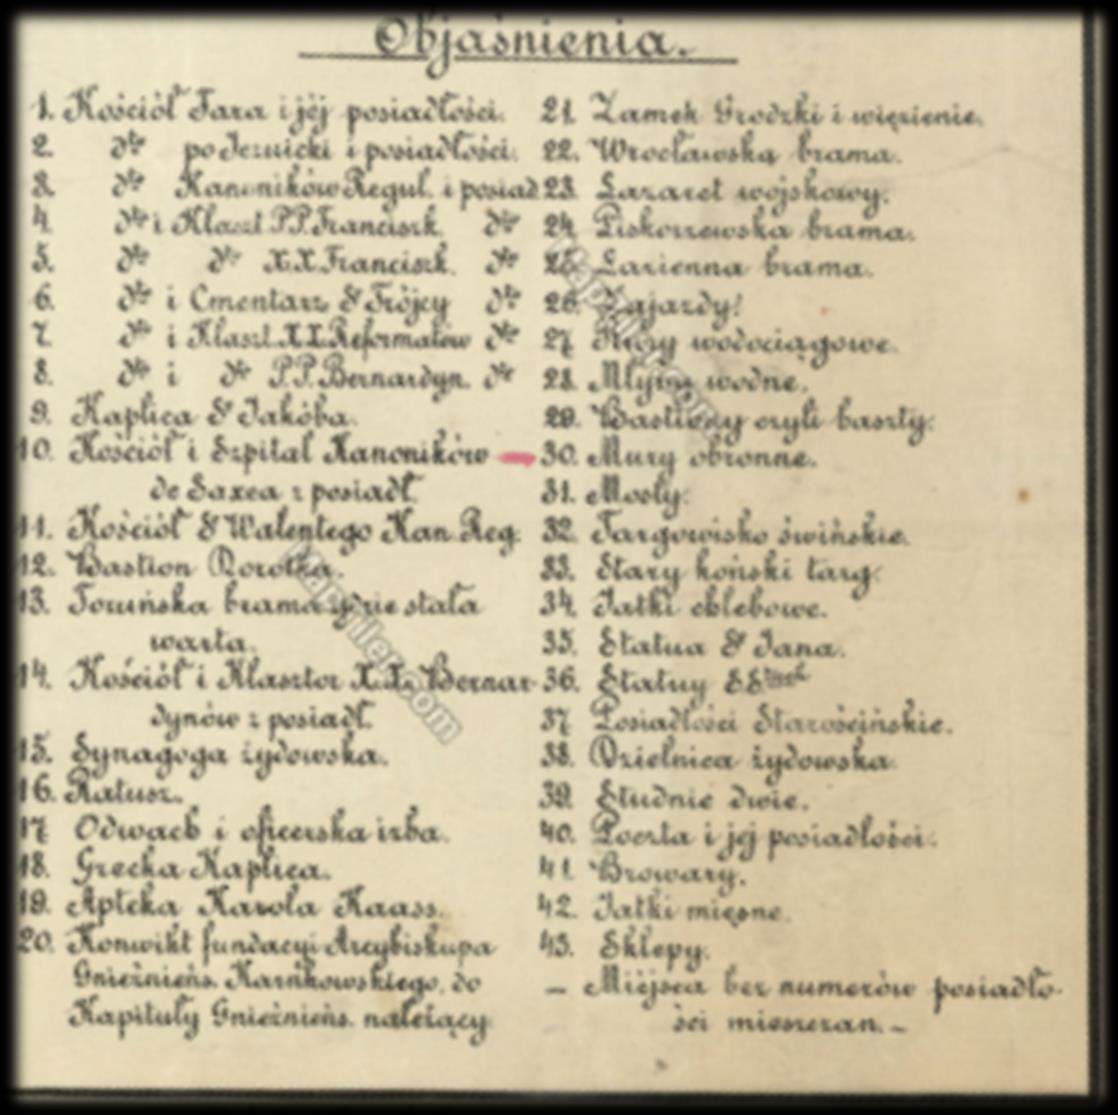 Objaśnienia.
1. Kościół Fara i jéj posiadłości.
2. dto po Jezuicki i posiadłości.
3. dto Kanoników Regul. i posiad
4. dto i Klaszt. P.P. Franciszk. dto
5. dto dto X.X. Franciszk. dto
6. dto i Cmentarz St Trójcy dto
7. dto i Klaszt. X.X. Reformatów dto
8. dto i dto P.P. Bernardyn. dto
9. Kaplica St Jakóba.
10. Kościół i Szpital Kanoników
de Saxea z posiadł.
11. Kościół St Walentego Kan. Reg.
12. Bastion Dorotka.
13. Toruńska brama gdzie stała
warta.
14. Kościół i Klasztor X.X. Bernar
dynów z posiadł.
15. Synagoga żydowska.
16. Ratusz.
17. Odwach i oficerska izba.
18. Grecka Kaplica.
19. Apteka Karola Kaass.
20. Konwikt fundacyi Arcybiskupa
Gnieźnieńs. Karnkowskiego, do
Kapituły Gnieźnieńs. należący
21. Zamek Grodzki i więzienie.
22. Wrocławska brama.
23. Lazaret wojskowy.
24. Piskorzewska brama.
25. Łazienna brama.
26. Zajazdy.
27. Rury wodociągowe.
28. Młyny wodne.
29. Bastiony czyli baszty.
30. Mury obronne.
31. Mosty.
32. Targowisko świńskie.
33. Stary koński targ.
34. Jatki chlebowe.
35. Statua St Jana.
36. Statuy SS
37. Posiadłości Starościńskie.
38. Dzielnica żydowska.
39. Studnie dwie.
40. Poczta i jej posiadłości.
41. Browary.
42. Jatki mięsne.
43. Sklepy.
– Miejsca bez numerów posiadło-
ści mieszczan. –
mapywig.com